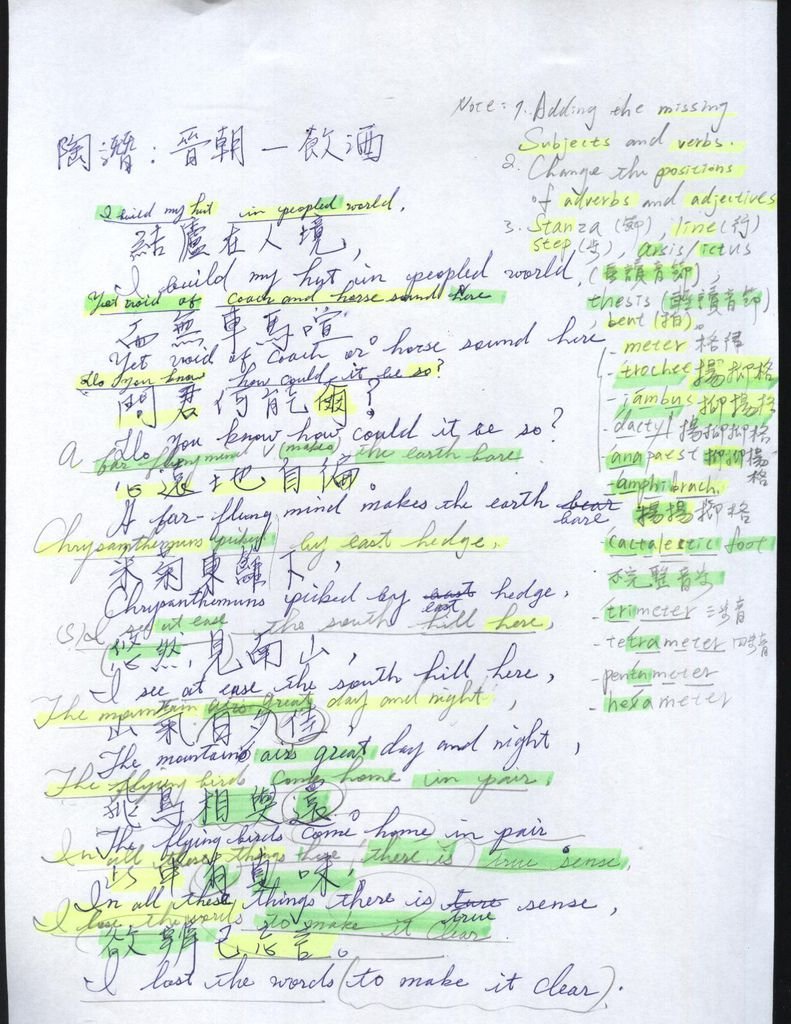 Note: 1. Adding the missing
Subjects and verbs.
2. Change the positions
of adverbs and adjectives
3. Stanza (節), line (行)
step (步), arsis/ictus
(重讀音節),
thesis (輕讀音節)
, beat (拍)。
- meter 格律
- trochee 揚抑格
- iambus 抑揚格
- dactyl 揚抑抑格
- anapaest 抑抑揚格
- amphibrach.
揚揚抑格
- cactalectic foot
不完整音步
- trimeter 三步音
- tetrameter 四步音
- pentameter
- hexameter
陶潛：晉朝－飲酒
I build my hut in peopled world,
結廬在人境，
I build my hut in peopled world,
Yet void of coach and horse sound here
而無車馬喧
Yet void of coach or horse sound here
Do you know how could it be so?
問君何能爾？
Do you know how could it be so?
A far-flying mind (makes) the earth bare
心遠土地自偏。
A far-flung mind makes the earth bear bare
Chrysanthemums picked by east hedge,
采菊東籬下，
Chrysanthemums picked by east east hedge,
(s) I see at ease the south hill here,
悠然見南山，
I see at ease the south hill here,
The mountain airs great day and night,
山氣日夕佳，
The mountains airs great day and night,
The flying birds come home in pair.
飛鳥相與還。
The flying birds come home in pair
In all these things here, there is true sense,
此中有真味，
In all these things there is ture true sense,
I lose the words to make it clear.
欲辨已忘言。
I lost the words (to make it clear).